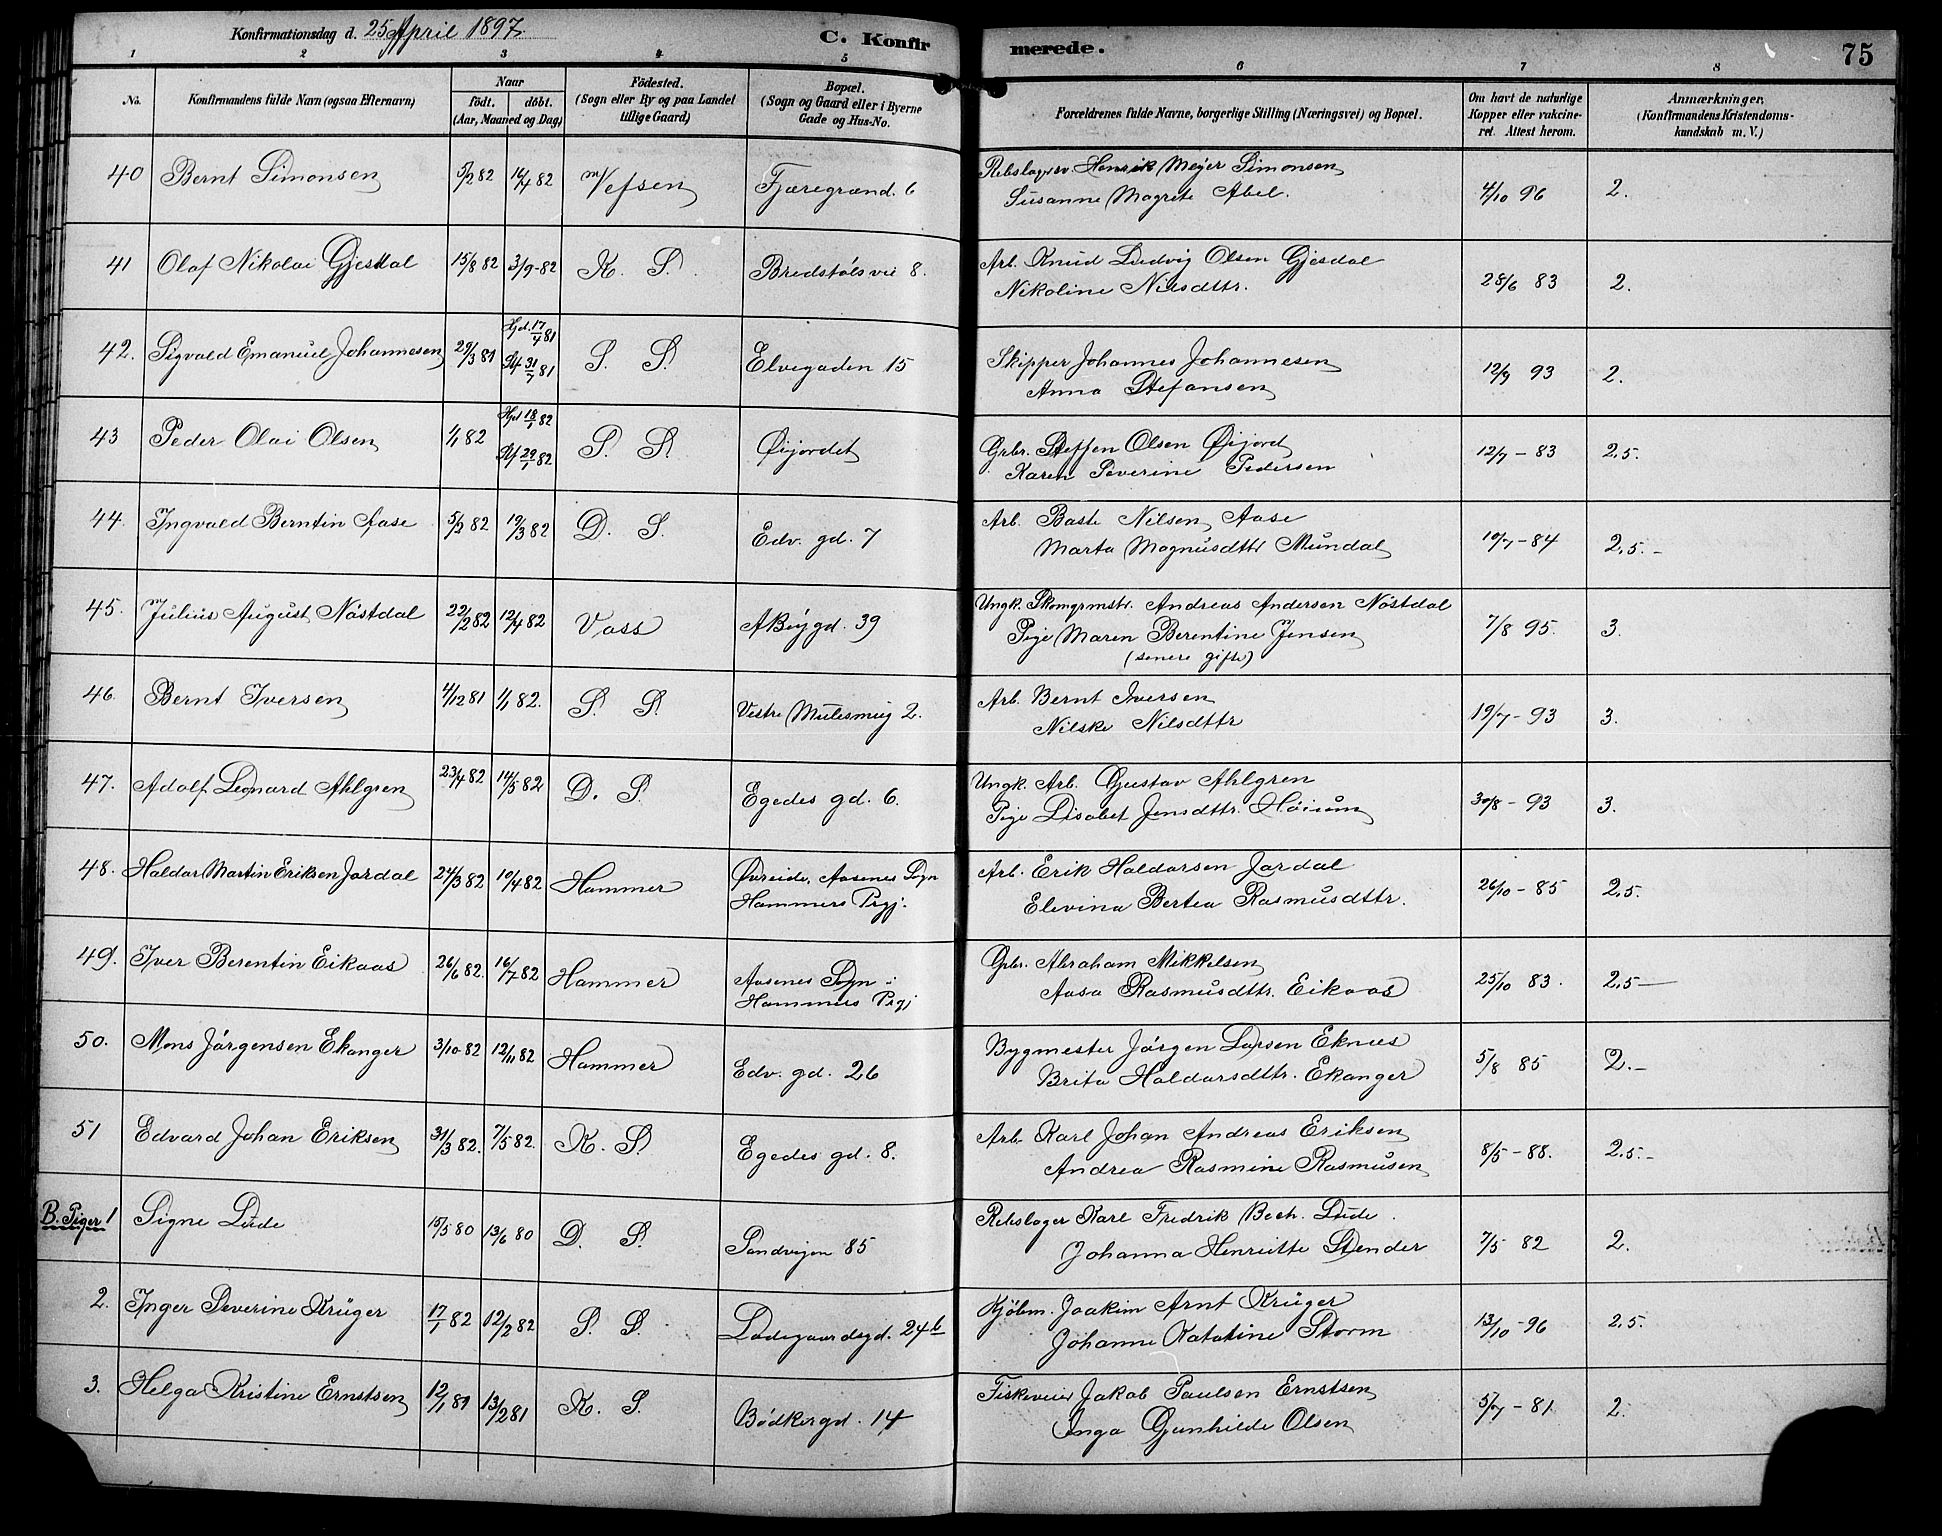 Konfirmationsdag d. 25 April 1897.
C. Konfirmerede. 75
1 2 3 4 5 6 7 8
No.
Konfirmandens fulde Navn (ogsaa Efternavn)
Naar
födt. döbt.
(Aar, Maaned og Dag)
Födested.
(Sogn eller By og paa Landet
tillige Gaard)
Bopæl.
(Sogn og Gaard eller i Byerne
Gade og Hus-No.
Forældrenes fulde Navne, borgerlige Stilling (Næringsvei) og Bopæl.
Om havt de naturlige
Kopper eller vakcine-
ret. Attest herom.
Anmærkninger.
(Konfirmandens Kristendoms-
kundskab m. V.)
40 Bernt Simonsen 5/2 82 16/4 82 Vefsen Fjæregrænd. 6 Rebslager Henrik Meyer Simonsen 4/10 96 2.
Susanne Magrete Abel.
41 Olaf Nikolai Gjesdal 15/8 82 3/9-82 K. S. Bredstölsvei 8. Arb. Knud Ludvig Olsen Gjesdal 28/6 83 2.
Nikoline Nilsdttr.
42. Sigvald Emanuel Johannesen 29/3 81 Hjd. 17/4 81 S. S. Elvegaden 15 Skipper Johannes Johannesen 12/9 93 2.
Stf 31/7 81 Anna Stefansen
43 Peder Olai Olsen 1/1 82 Hjd 18/1 82 S. S. Øijordet Grbr. Steffen Olsen Øijord 12/7-83 2,5.
Stf 29/1 82 Karen Severine Pedersen
44. Ingvald Berntin Aase 5/2 82 19/3 82 D. S. Edv. gd. 7 Arb. Baste Nilsen Aase 10/7-84 2,5.-
Marta Magnusdttr Mundal
45. Julius August Nöstdal 22/2 82 12/4 82 Voss ABýgd. 39 Ungk. Skomgrmstr. Andreas Andersen Nöstdal 7/8 95. 3.
Pige Maren Berentine Jensen
(senere gifte)
46. Bernt Iversen 4/12 81 1/1 82. S. S. Vestre Mulesmug 2. Arb. Bernt Iversen 19/7-93 3.
Nilske Nilsdttr
47. Adolf Leonard Ahlgren 23/4 82 14/5 82 D. S. Egedes gd. 6. Ungk. Arb. Gustav Ahlgren 30/8-93 3.
Pige Lisabet Jensdttr. Höisum
48. Haldor Martin Eriksen Jordal 24/3 82 10/4 82 Hammer Øvreide, Aasenes Sogn Arb. Erik Haldorsen Jordal 26/10-85 2,5.
Hammers Prgj. Elevina Bertea Rasmusdttr.
49. Iver Berentin Eikaas 26/6 82. 16/7 82 Hammer Aasenes Sogn i Grbr. Abraham Mikkelsen 25/10 83. 2,5-
Hammers Prgj Aasa Rasmusdttr. Eikaas
50. Mons Jörgensen Ekanger 3/10 82 12/11 82 Hammer Edv. gd. 26 Bygmester Jörgen Larsen Eknus 5/8 85 2.-
Brita Haldorsdttr. Ekanger
51 Edvard Johan Eriksen 31/3 82. 7/5 82. K. S. Egedes gd. 8. Arb. Karl Johan Andreas Eriksen 8/5-88. 2,5.-
Andrea Rasmine Rasmusen
B. Piger 1 Signe Lude 15/5 80 13/6 80 D. S. Sandvigen 85 Rebslager Karl Fredrik Boch. Lude. 7/5 82 2.
Johanna Henriette Stender
2. Inger Severine Krüger 17/1 82 12/2 82 S. S. Ladegaardsgd. 24b Kjöbm. Joakim Arnt Krüger 13/10-96 2,5.
Johanne Katatine Storm
3. Helga Kristine Ernstsen 12/1 81 13/2 81 K. S. Bödkergd. 14 Fiskeveier Jakob Paulsen Ernstsen 5/7-81 2.
Inga Gunhilde Olsen